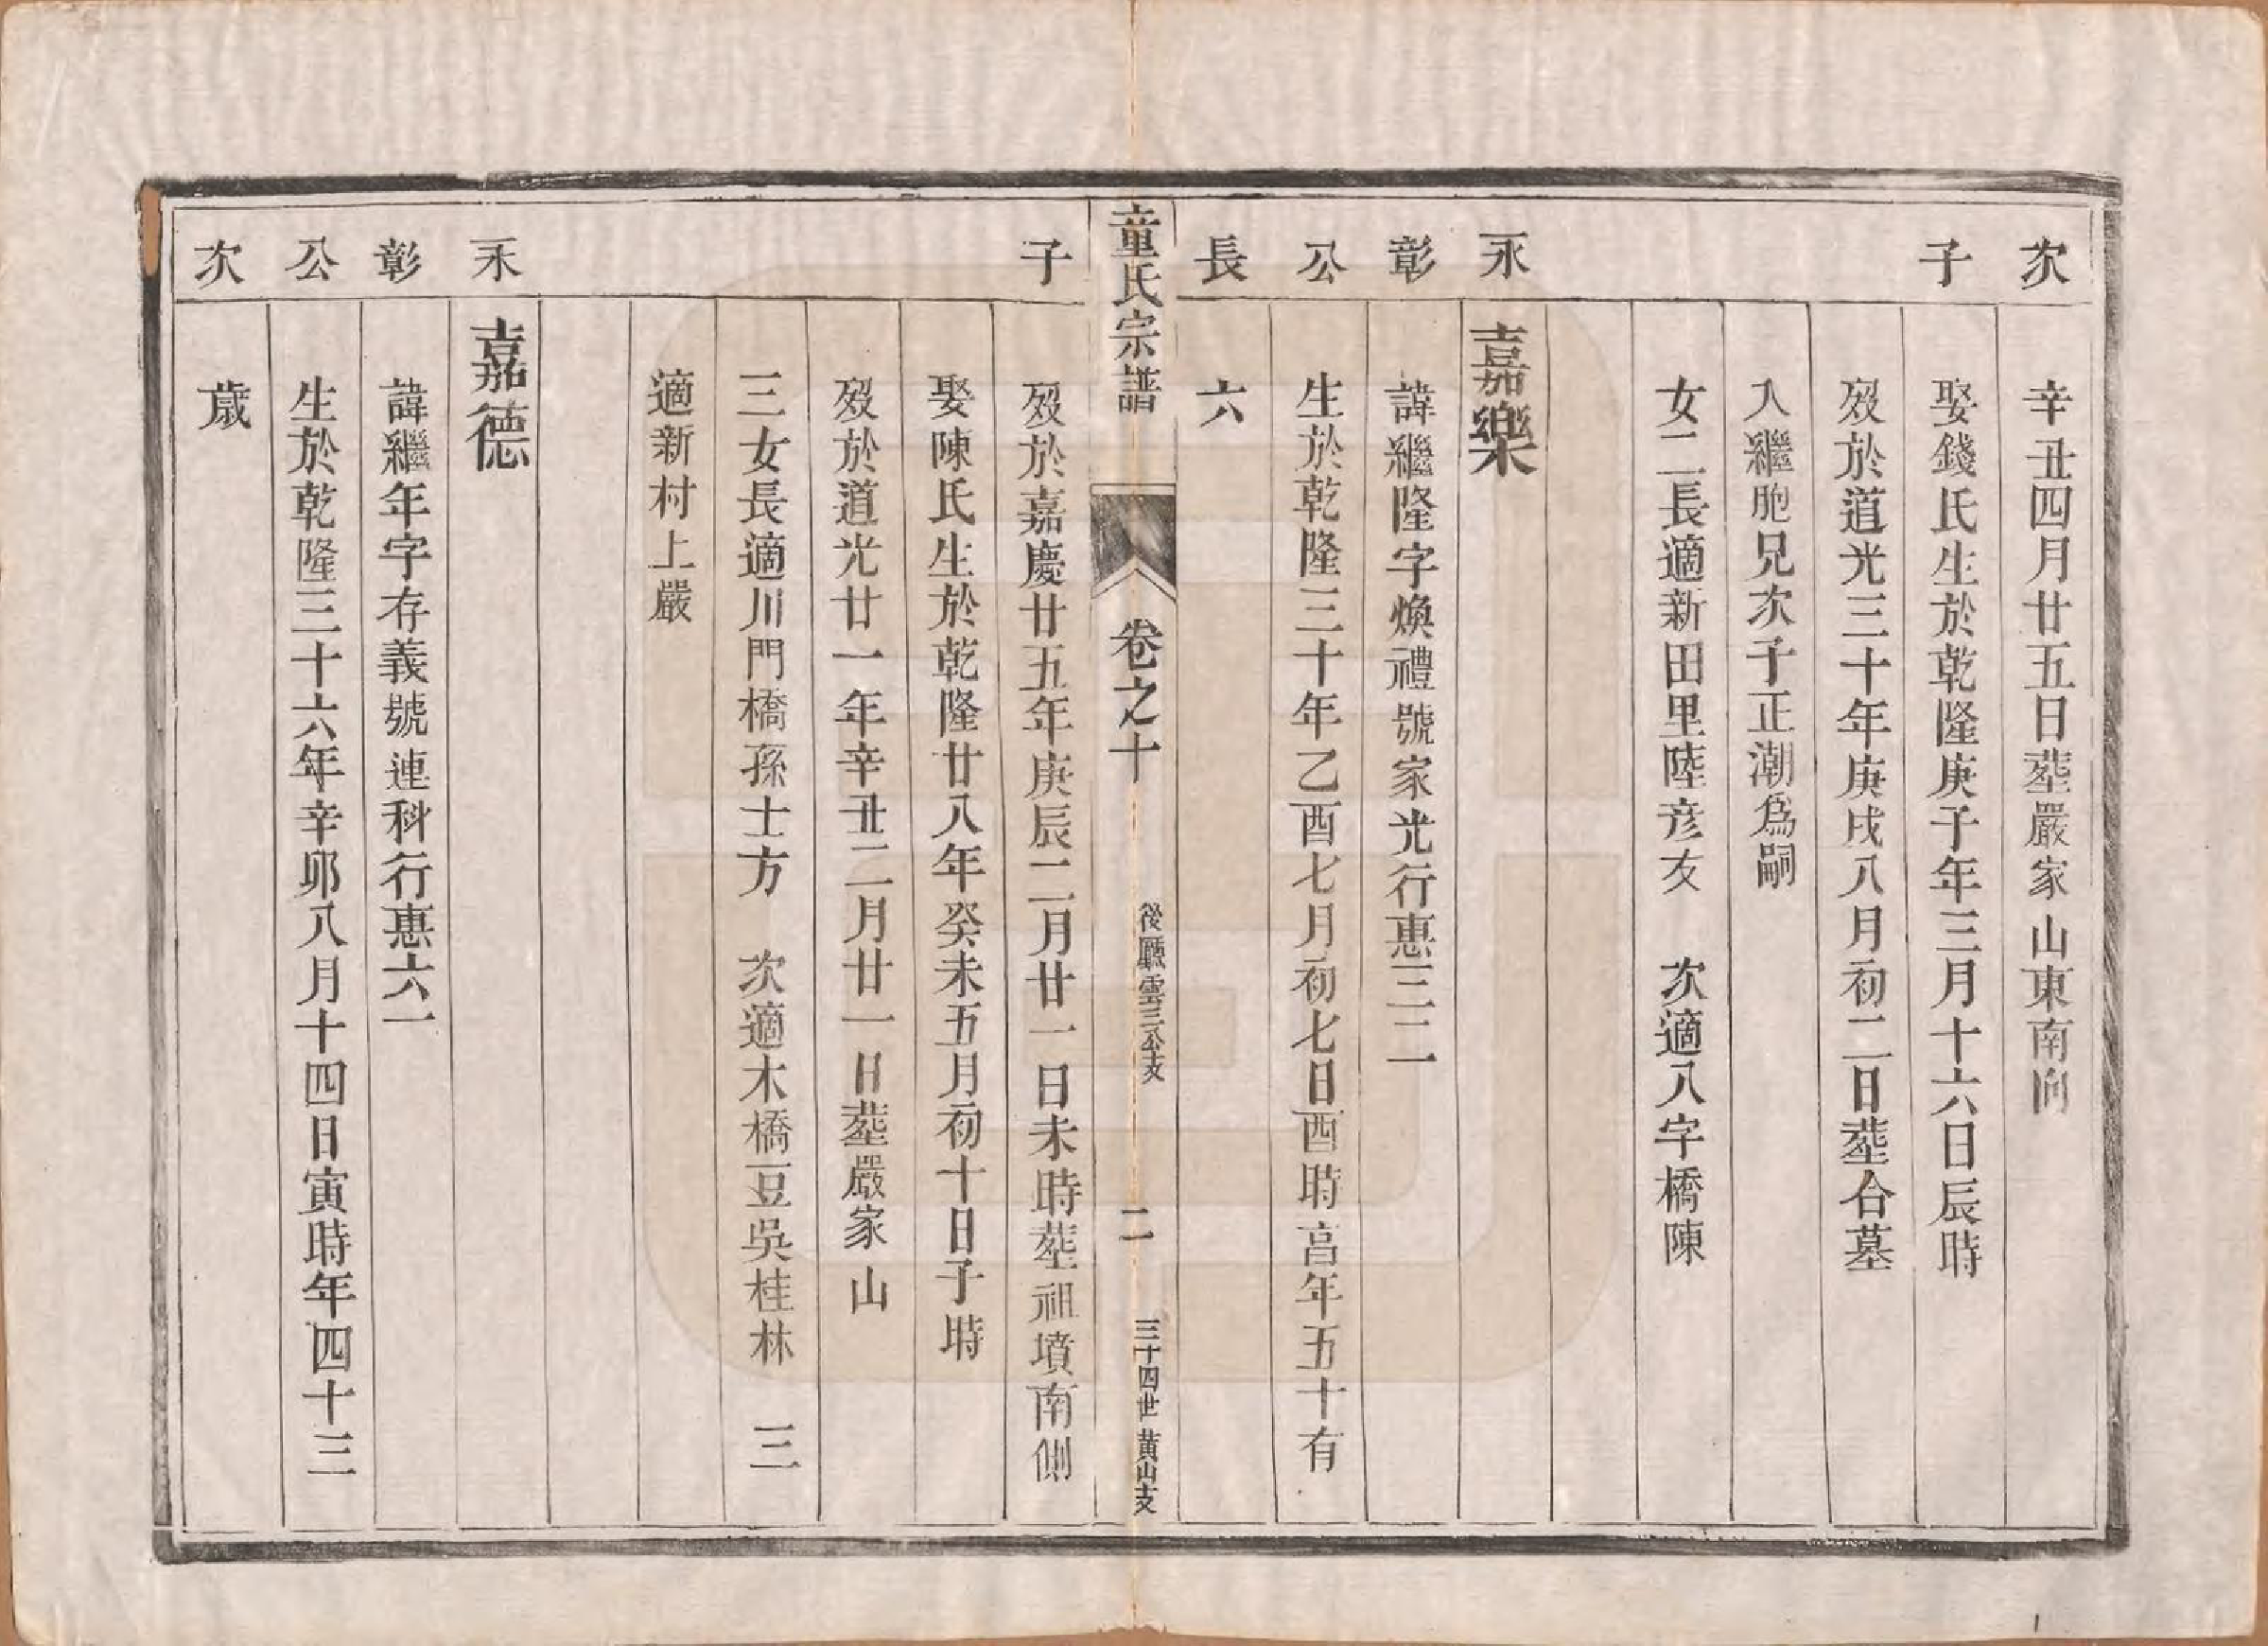 次
辛丑四月廿五日塟嚴家山東南向
子
娶錢氏生於乾隆庚子年三月十六日辰時
歿於道光三十年庚戌八月初二日塟合墓
入繼胞兄次子正潮爲嗣
女二長適新田里陸彦友　次適八字橋陳
永
嘉樂
彰
諱繼隆字煥禮號家光行惠三二
公
生於乾隆三十年乙酉七月初七日酉時享年五十有
長
六
童氏宗譜
卷之十
後廳雲三公支
二
三十四世 黄山支
子
歿於嘉慶廿五年庚辰二月廿一日未時塟祖墳南側
娶陳氏生於乾隆廿八年癸未五月初十日子時
歿於道光廿一年辛丑二月廿一日塟嚴家山
三女長適川門橋孫士方　次適木橋豆吳桂林　三
適新村上嚴
永
嘉德
彰
諱繼年字存義號連科行惠六一
公
生於乾隆三十六年辛卯八月十四日寅時年四十三
次
歲